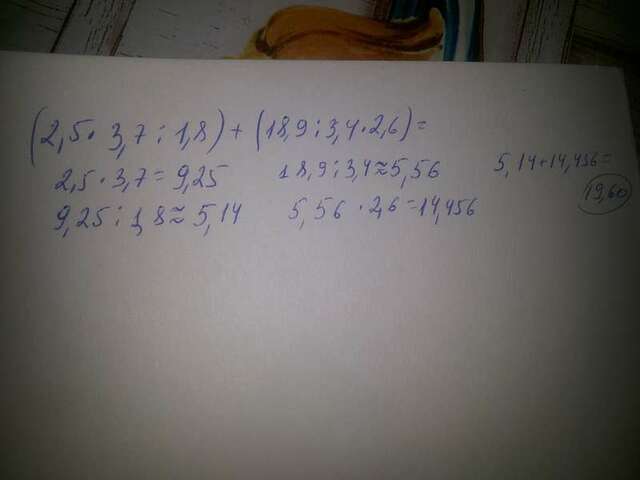 (2,5 · 3,7 : 1,8) + (18,9 : 3,4 · 2,6) =
2,5 · 3,7 = 9,25 18,9 : 3,4 ≈ 5,56 5,14 + 14,456 =
9,25 : 1,8 ≈ 5,14 5,56 · 2,6 = 14,456 19,60